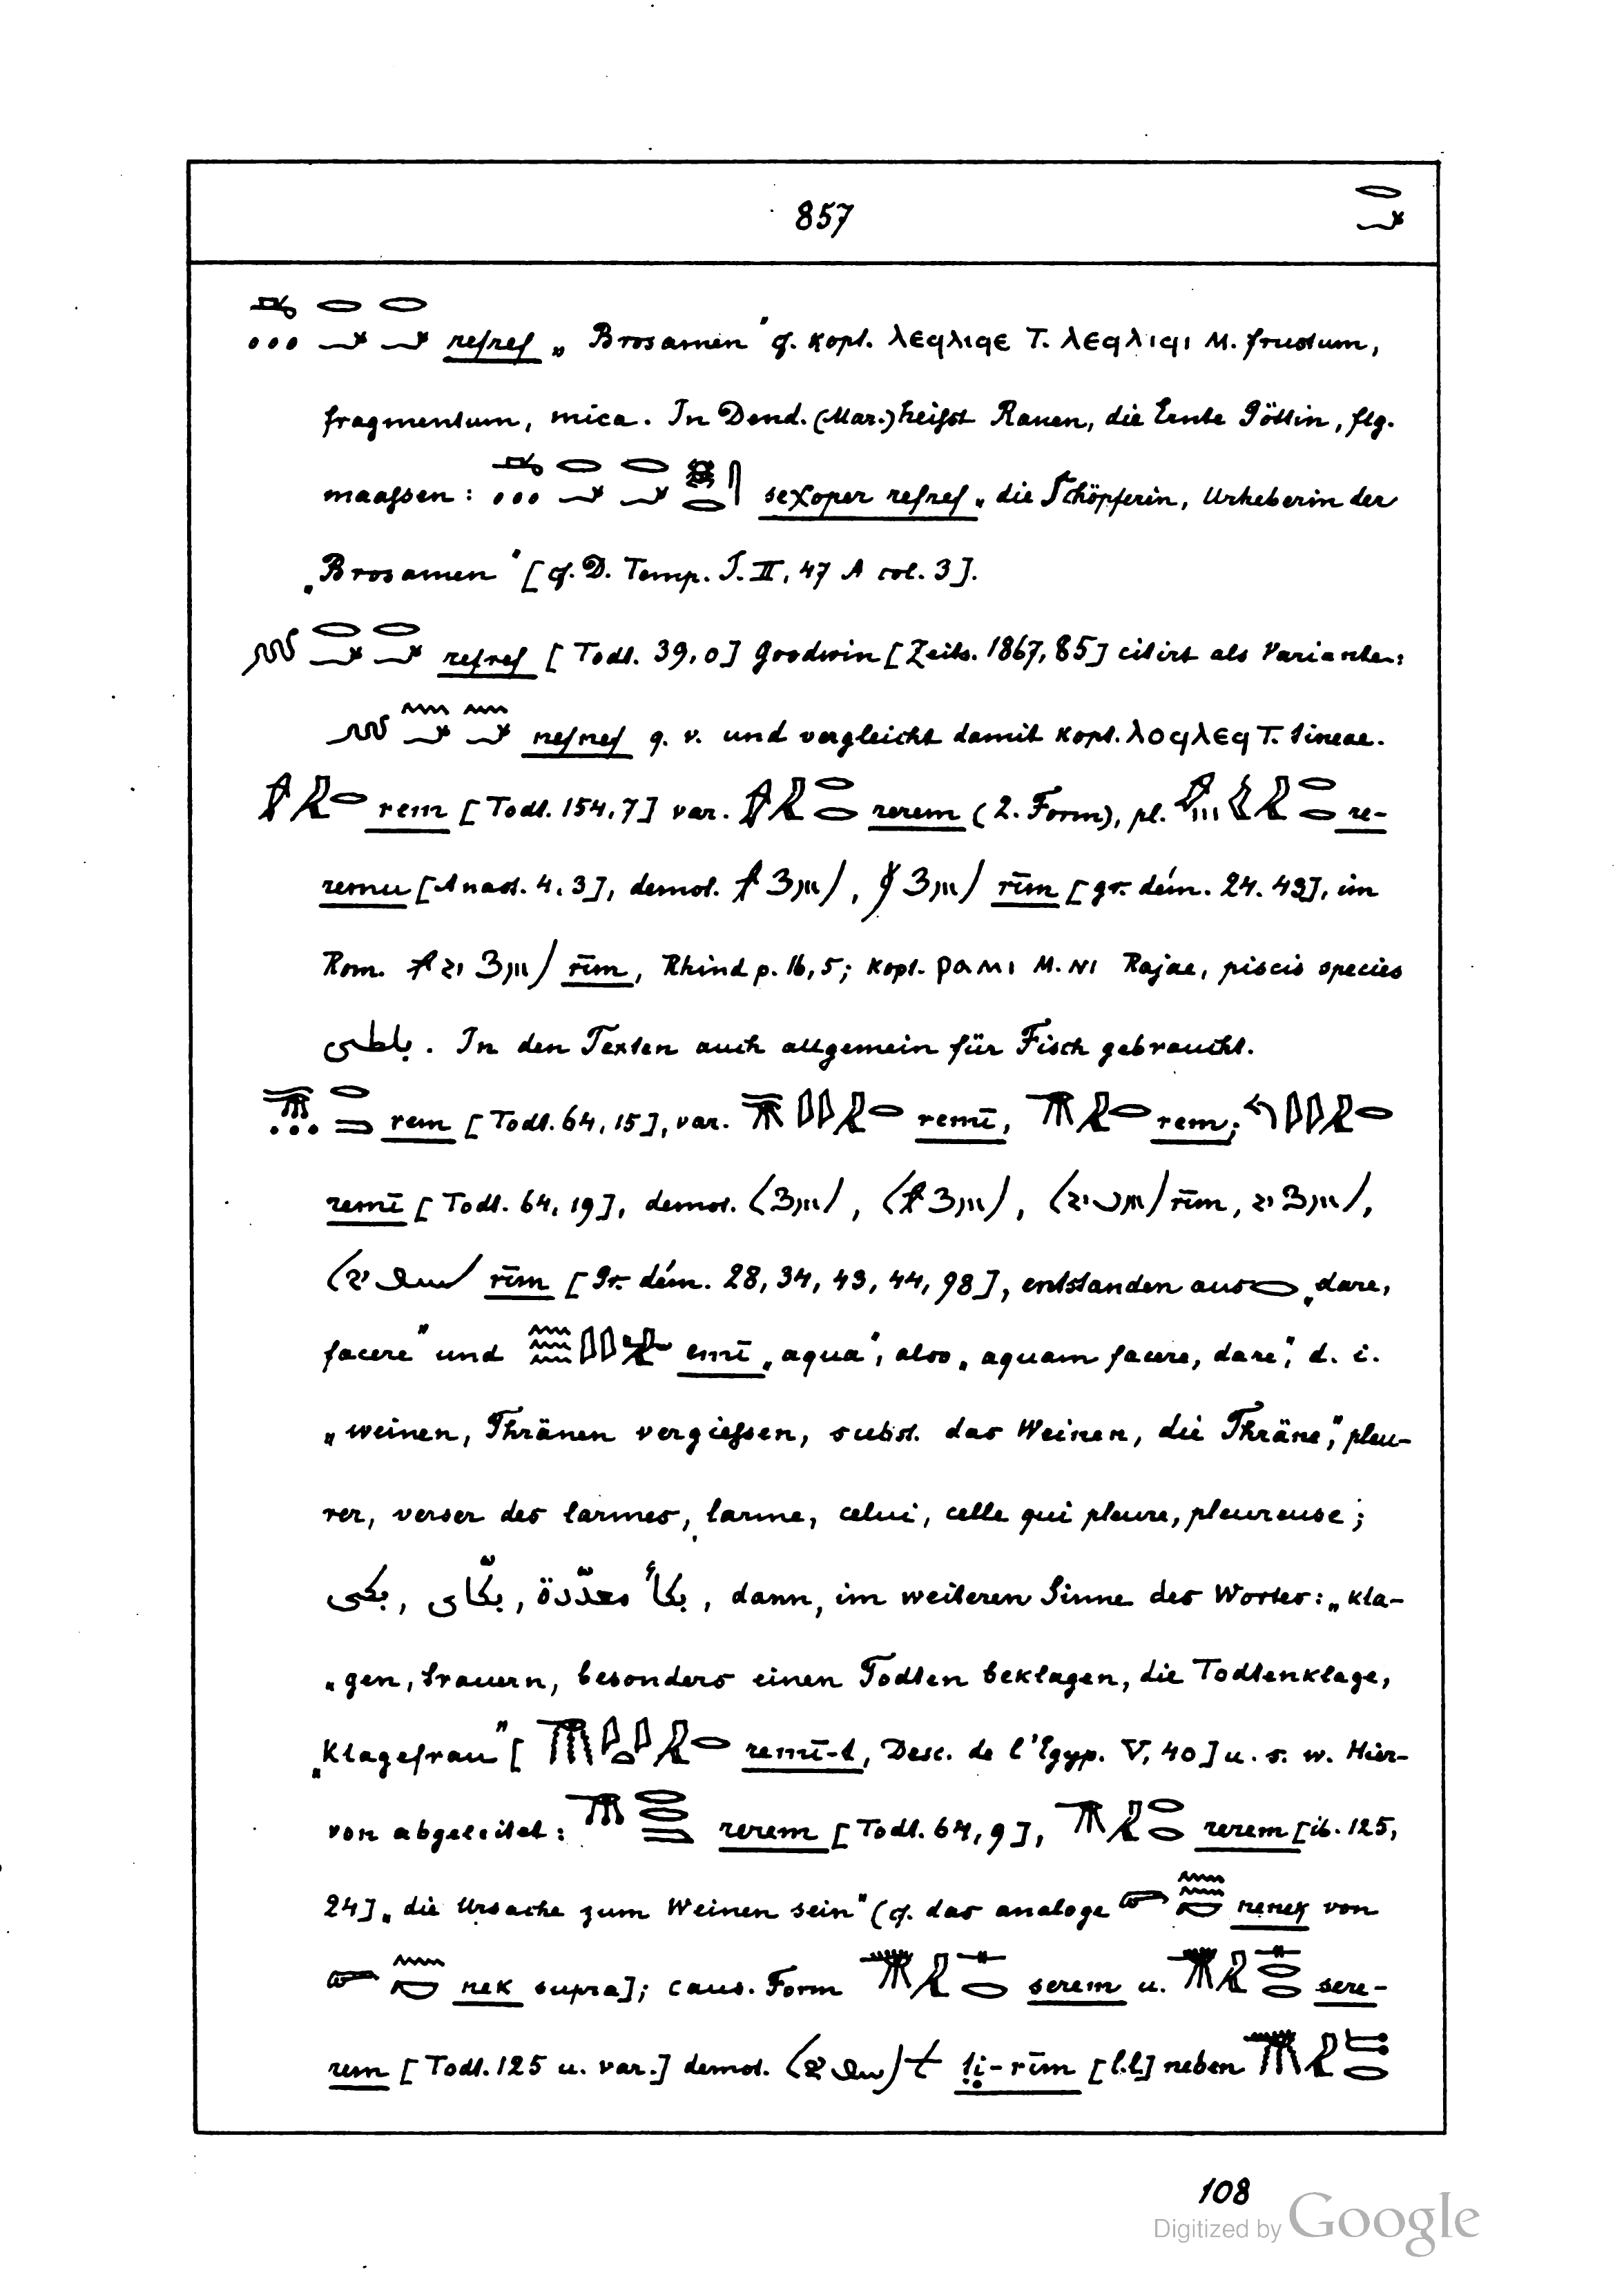 857
refref „Brosamen“ cf. kopt. ⲗⲉϥⲗⲓϥⲉ T. ⲗⲉϥⲗⲓϥⲓ M. frustum,
fragmentum, mica. In Dend. (Mar.) heifst Ranen, die Ernte Göttin, flg.
maafsen: seχoper refref „die Schöpferin, Urheberin der
„Brosamen“ [cf. D. Temp. T. II, 47 A col. 3].
refref [Todt. 39,0] Goodwin [Zeits. 1867, 85] citirt als Variante:
nefnef q. v. und vergleicht damit kopt. ⲗⲟϥⲗⲉϥ T. tineae.
rem [Todt. 154,7] var. rerem (2. Form), pl. re-
remu [Anast. 4,3], demot. rīm [gr. dém. 24. 43], im
Rom. rīm, Rhind p. 16,5; kopt. ⲣⲁⲙⲓ M. ⲛⲓ Rajae, piscis species
بلطى. In den Texten auch allgemein für Fisch gebraucht.
rem [Todt. 64,15], var. remī, rem; 
remī [Todt. 64, 19], demot. rīm,
rīm [Gr. dém. 28, 34, 43, 44, 98], entstanden aus „dare,
facere“ und emī „aqua“, also „aquam facere, dare“, d. i.
„weinen, Thränen vergiefsen, subst. das Weinen, die Thräne“, pleu-
rer, verser des larmes, larme, celui, celle qui pleure, pleureuse;
بكى, بكّاى, بكاٌ معدّدة, dann, im weiteren Sinne des Wortes: „kla-
„gen, trauern, besonders einen Todten beklagen, die Todtenklage,
„Klagefrau“ [remī-t, Desc. de l'Egyp. V, 40] u. s. w. Hier-
von abgeleitet: rerem [Todt. 64,9], rerem [ib. 125,
24] „die Ursache zum Weinen sein“ (cf. das analoge nenek von
nek supra]; caus. Form serem u. sere-
rem [Todt. 125 u. var.] demot. ṭi-rīm [l.l.] neben
108
Digitized by Google